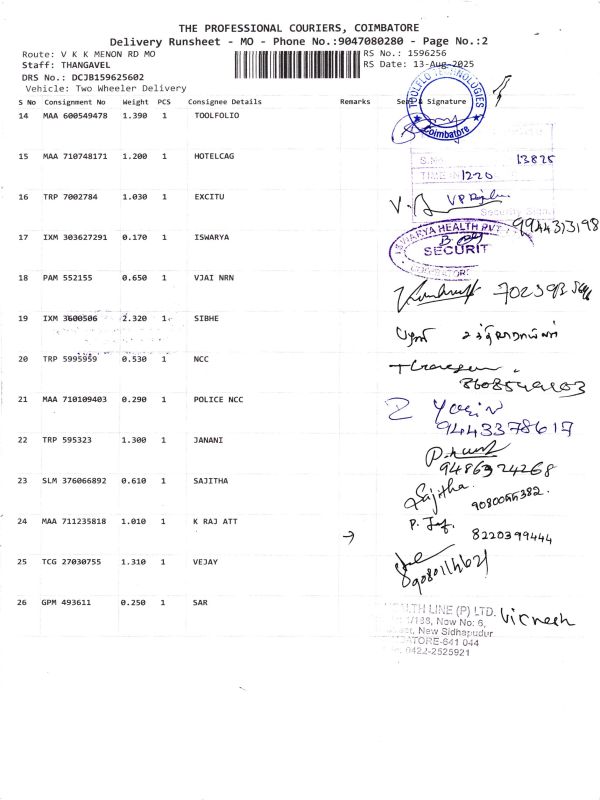 THE PROFESSIONAL COURIERS, COIMBATORE
Delivery Runsheet - MO - Phone No.:9047080280 - Page No.:2
Route: V K K MENON RD MO RS No.: 1596256
Staff: THANGAVEL RS Date: 13-Aug-2025
DRS No.: DCJB159625602
Vehicle: Two Wheeler Delivery
S No Consignment No Weight PCS Consignee Details Remarks Seal & Signature
14 MAA 600549478 1.390 1 TOOLFOLIO
TOOLFLO TECHNOLOGIES
Coimbatore
15 MAA 710748171 1.200 1 HOTELCAG
S.No 13825
TIME IN 1220
16 TRP 7002784 1.030 1 EXCITU
9944313198
17 IXM 303627291 0.170 1 ISWARYA
HEALTH PVT
SECURIT
18 PAM 552155 0.650 1 VJAI NRN
19 IXM 3600506 2.320 1 SIBHE
20 TRP 5995959 0.530 1 NCC
21 MAA 710109403 0.290 1 POLICE NCC
9443378617
22 TRP 595323 1.300 1 JANANI
9486924268
23 SLM 376066892 0.610 1 SAJITHA
Sajitha
24 MAA 711235818 1.010 1 K RAJ ATT
8220399444
25 TCG 27030755 1.310 1 VEJAY
26 GPM 493611 0.250 1 SAR
LTH LINE (P) LTD.
1/138, Now No: 6,
New Sidhapudur
ATORE-641 044
0422-2525921